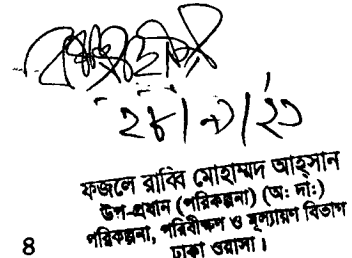 ফজলে রাব্বি মোহাম্মদ আহ্সান
উপ-প্রধান (পরিকল্পনা) (অ: দা:)
পরিকল্পনা, পরিবীক্ষণ ও মূল্যায়ণ বিভাগ
ঢাকা ওয়াসা।
8